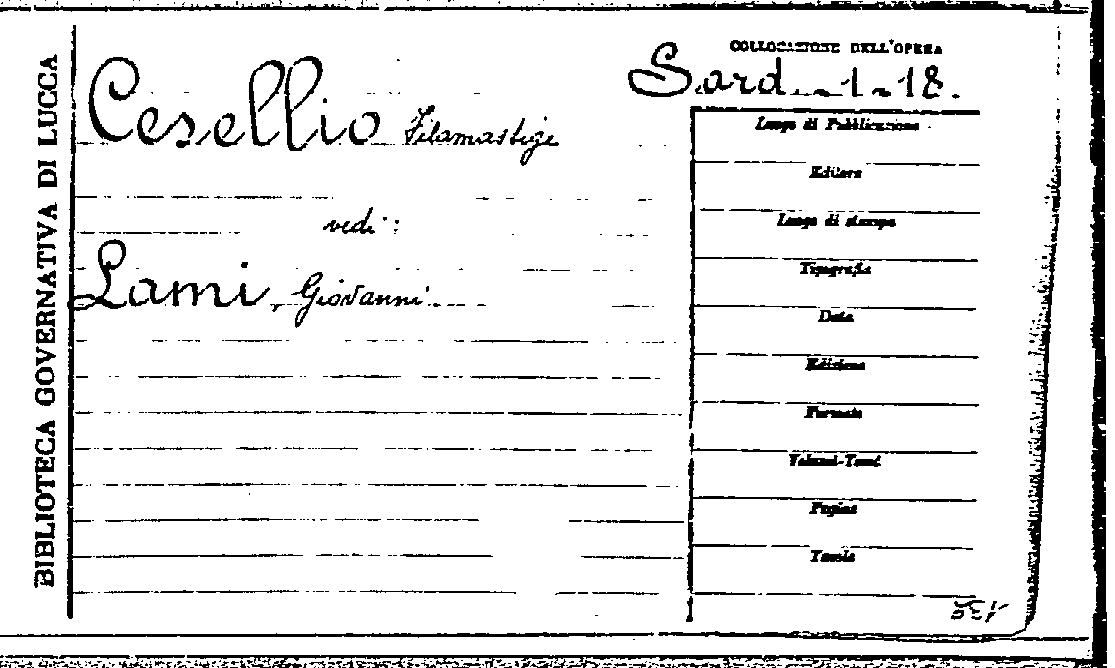 BIBLIOTECA GOVERNATIVA DI LUCCA
COLLOCAZIONE DELL'OPERA
Sard. - 1 - 18.
Cesellio Filomastige
vedi:
Lami, Giovanni
Luogo di Pubblicazione
Editore
Luogo di stampa
Tipografia
Data
Edizione
Formato
Volumi-Tomi
Pagine
Tavole